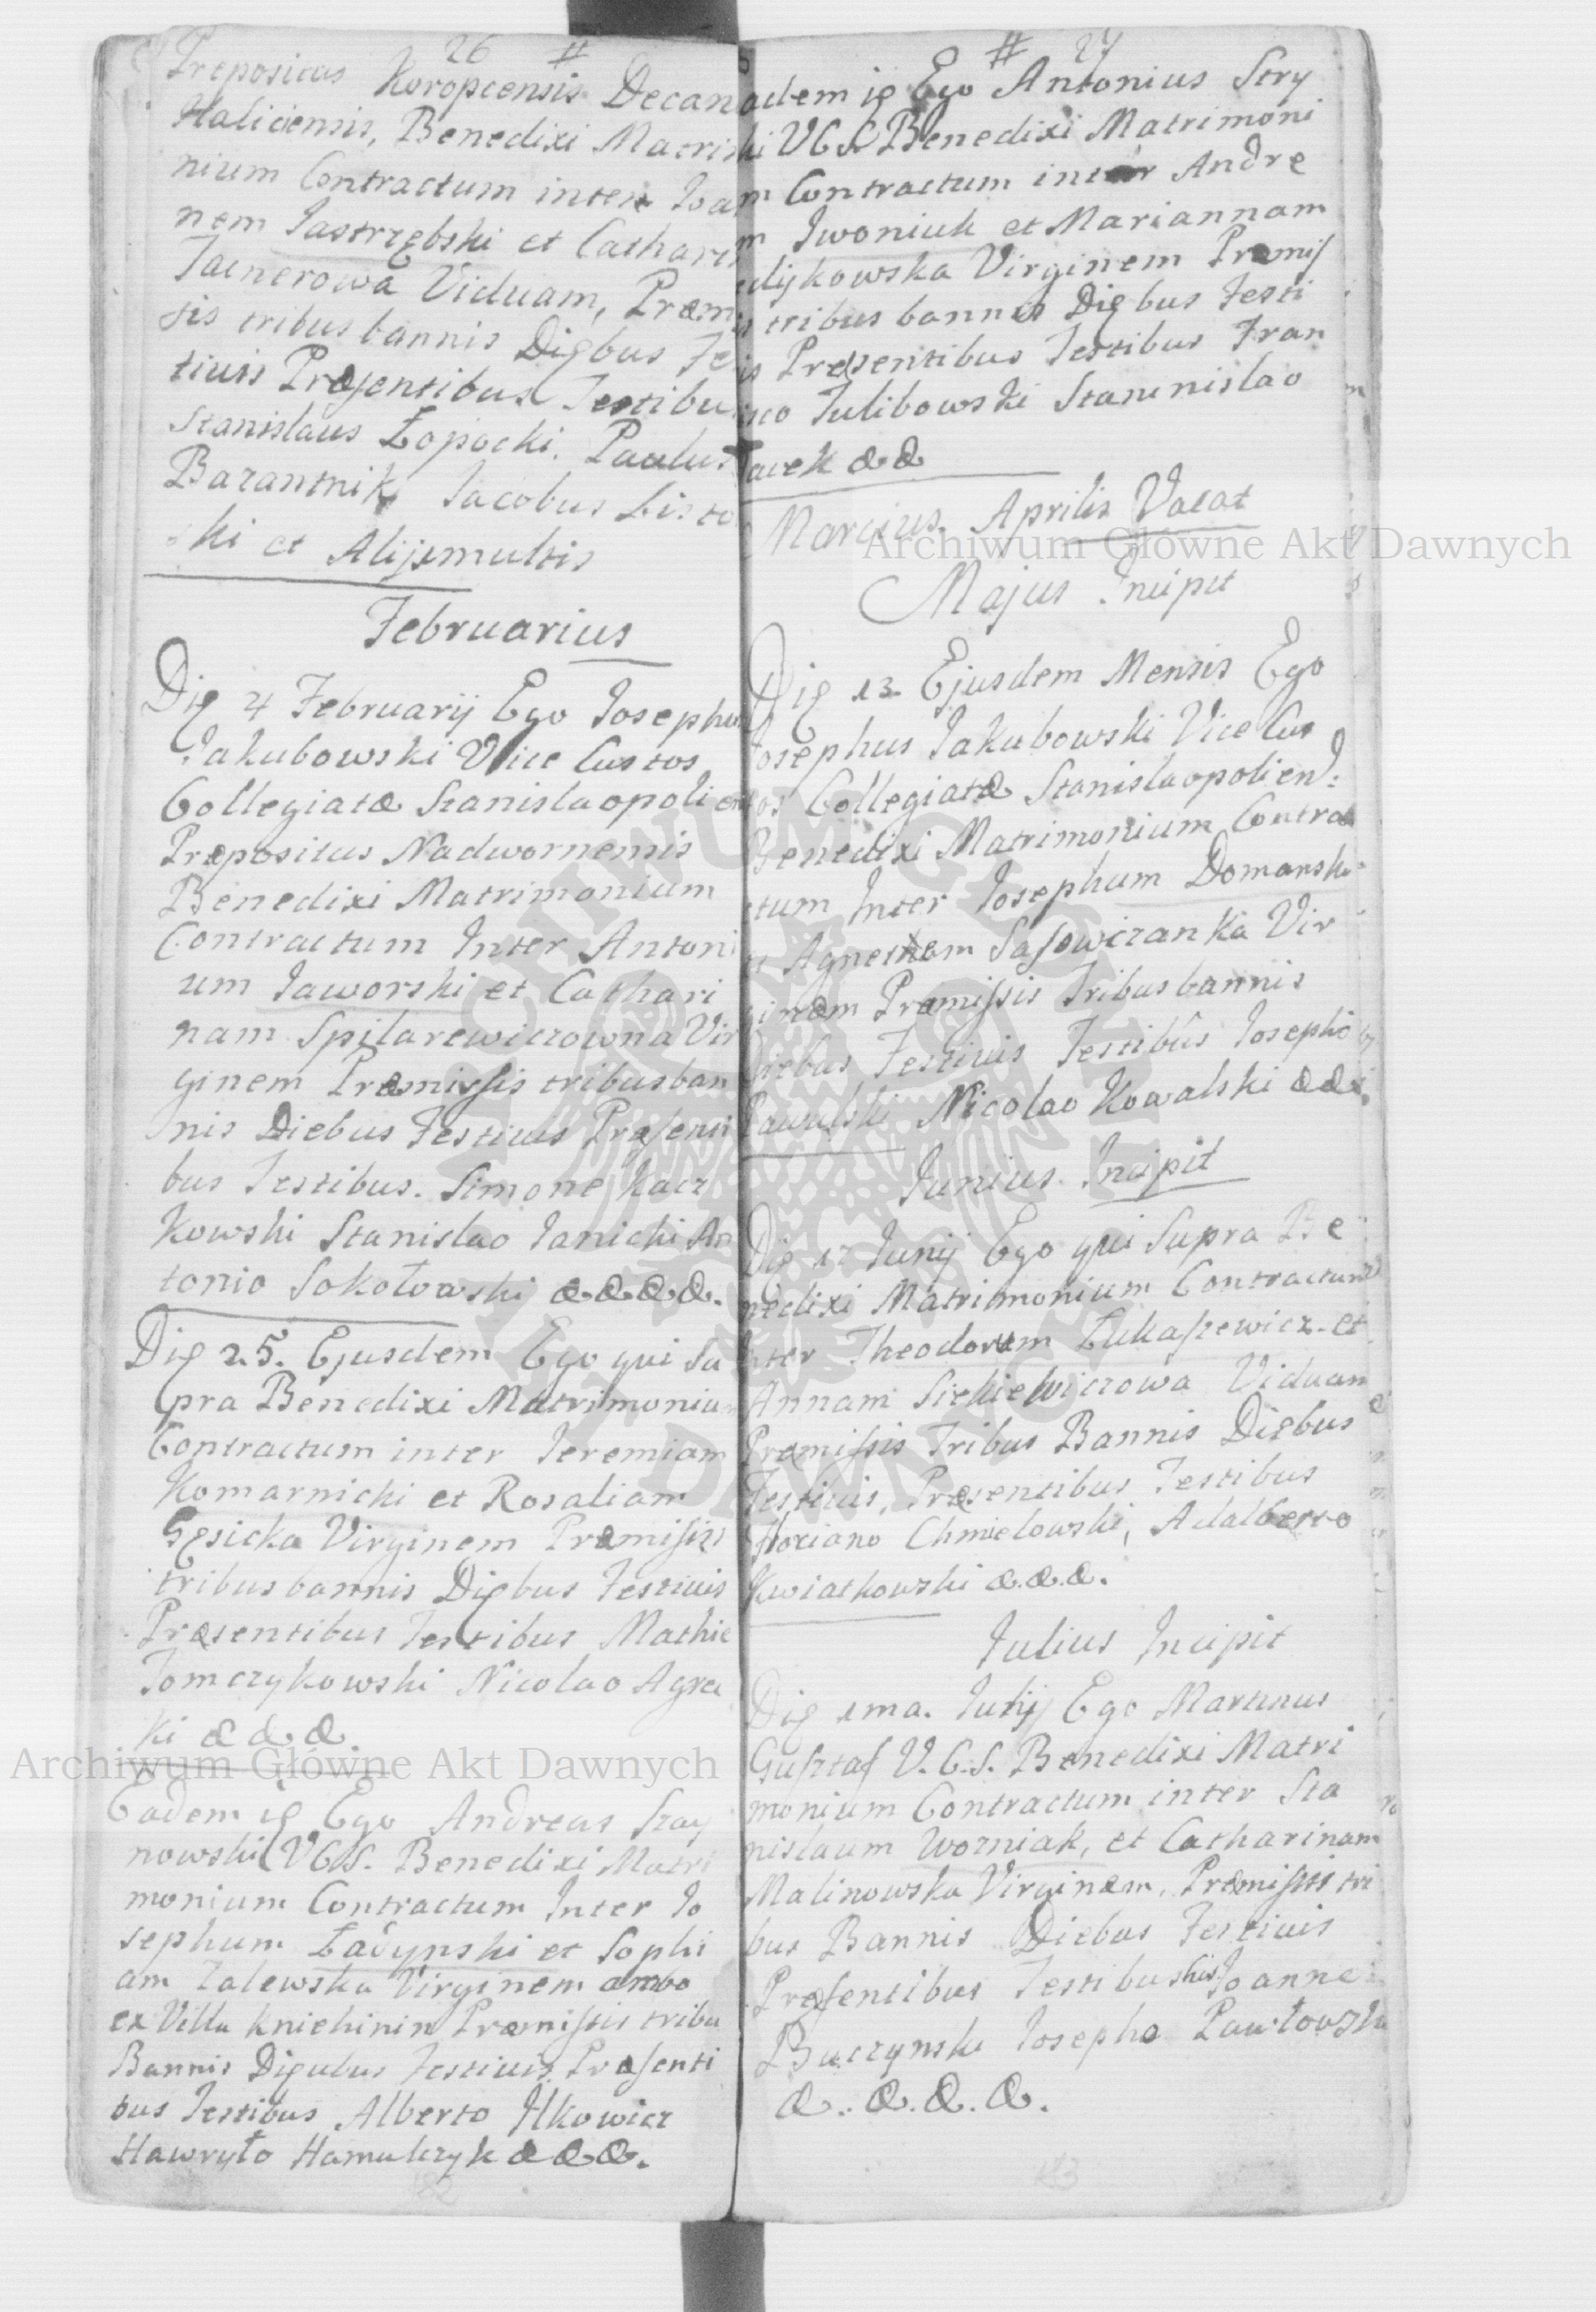 26 #
Prepositus Koropcensis Decan
Haliciensis, Benedixi Matri
nium Contractum inter Joan
nem Jastrzębski et Cathari
Viduam, Præmi
sis tribus bannis Diębus Fe
tiuis Præsentibus Testibu
Stanislaus Łopocki. Paulus
Bazantnik Jacobus
ki et Alijsmultis
Februarius
Dię 4 February Ego Josephu
Jakubowski Vice Custos
Collegiatæ Stanislaopoli
Præpositus Nadwornensis
Benedixi Matrimonium
Contractum Inter Antoni
um Jaworski et Cathari
nam Spilarewiczowna Vir
ginem Præmissis tribusban
nis Diebus Festiuis Præsenti
bus Testibus. Simone Kacz
kowski Stanislao Janicki An
tonio Sokołowski & & & &.
Dię 25. Ejusdem Ego qui Su
pra Benedixi Matrimonium
Contractum inter Jeremiam
Komarnicki et Rosaliam
Gęsicka Virginem Præmissis
tribus bannis Diębus Festiuis
Præsentibus Testibus Mathie
Tomczykowski Nicolao Agra
ki & & &.
Eadem ię Ego Andreas Szay
nowski VCS. Benedixi Matri
monium Contractum Inter Jo
sephum Ładynski et Sophi
am Zalewska Virginem ambo
ex Villa Kniehinin Præmissis tribu
Bannis Diębus Festiuis Præsenti
bus Testibus Alberto Ilkowicz
Hawryło Hamulczyk & & &.
182
# 27
adem ię Ego Antonius Stry
ki VCS. Benedixi Matrimoni
m Contractum inter Andre
m Iwoniuk et Mariannam
dykowska Virginem Premis
s tribus bannis Diębus Festi
is Presentibus Testibus Fran
isco Julibowski Stanislao
acek & &
Marcius. Aprilis Vacat
Majus Incipit
Dię 13 Ejusdem Mensis Ego
Josephus Jakubowski Vice Cus
tos Collegiatæ Stanislaopolien:
Benedixi Matrimonium Contra
ctum Inter Josephum Domansk
et Agnetem Sasowiczanka Vir
ginem Præmissis Tribus bannis
Diebus Festiuis Testibus Josepho
Pawulski Nicolao Kowalski & & &.
Junius Incipit
Dię 17 Junij Ego qui Supra Be
nedixi Matrimonium Contractum
Inter Theodorum Łukaszewicz et
Annam Siekiewiczowa Viduam
Præmissis Tribus Bannis Diębus
Festiuis, Præsentibus Testibus
Floriano Chmielowski, Adalberto
Kwiatkowski & & &.
Julius Incipit
Dię 1ma. Julij Ego Martinus
Gusztaf V.C.S. Benedixi Matri
monium Contractum inter Sta
nislaum Wozniak, et Catharinam
Malinowska Virginem, Præmissis tri
bus Bannis Diebus Festiuis
Præsentibus Testibus his Joanne
Buczynski Josepho Pawłowski
&. &. &. &.
183
Archiwum Główne Akt Dawnych
Archiwum Główne Akt Dawnych
ARCHIWUM GŁÓWNE AKT DAWNYCH